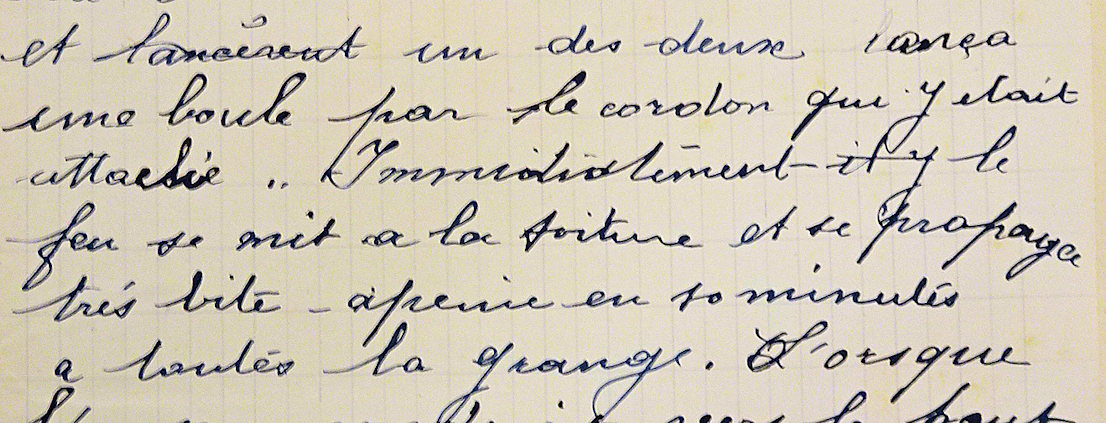 et lancèrent un des deux lança
une boule par le cordon qui y etait
attaché .. Immidiatément il y le
feu se mit a la toiture et se propagea
trés vite - apeine en 10 minutés
a toutés la grange. L'orsque
vers le haut